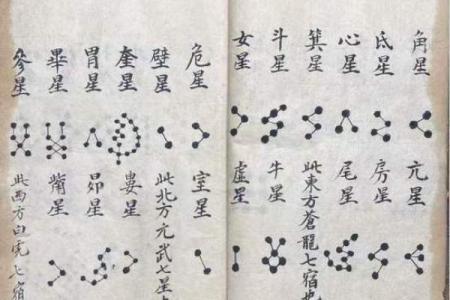 角星
亢星
氐星
房星
心星
尾星
箕星
此東方蒼龍七宿也
斗星
牛星
女星
虛星
危星
室星
壁星
此北方元武七星
奎星
婁星
胃星
昴星
畢星
觜星
參星
此西方白虎七宿